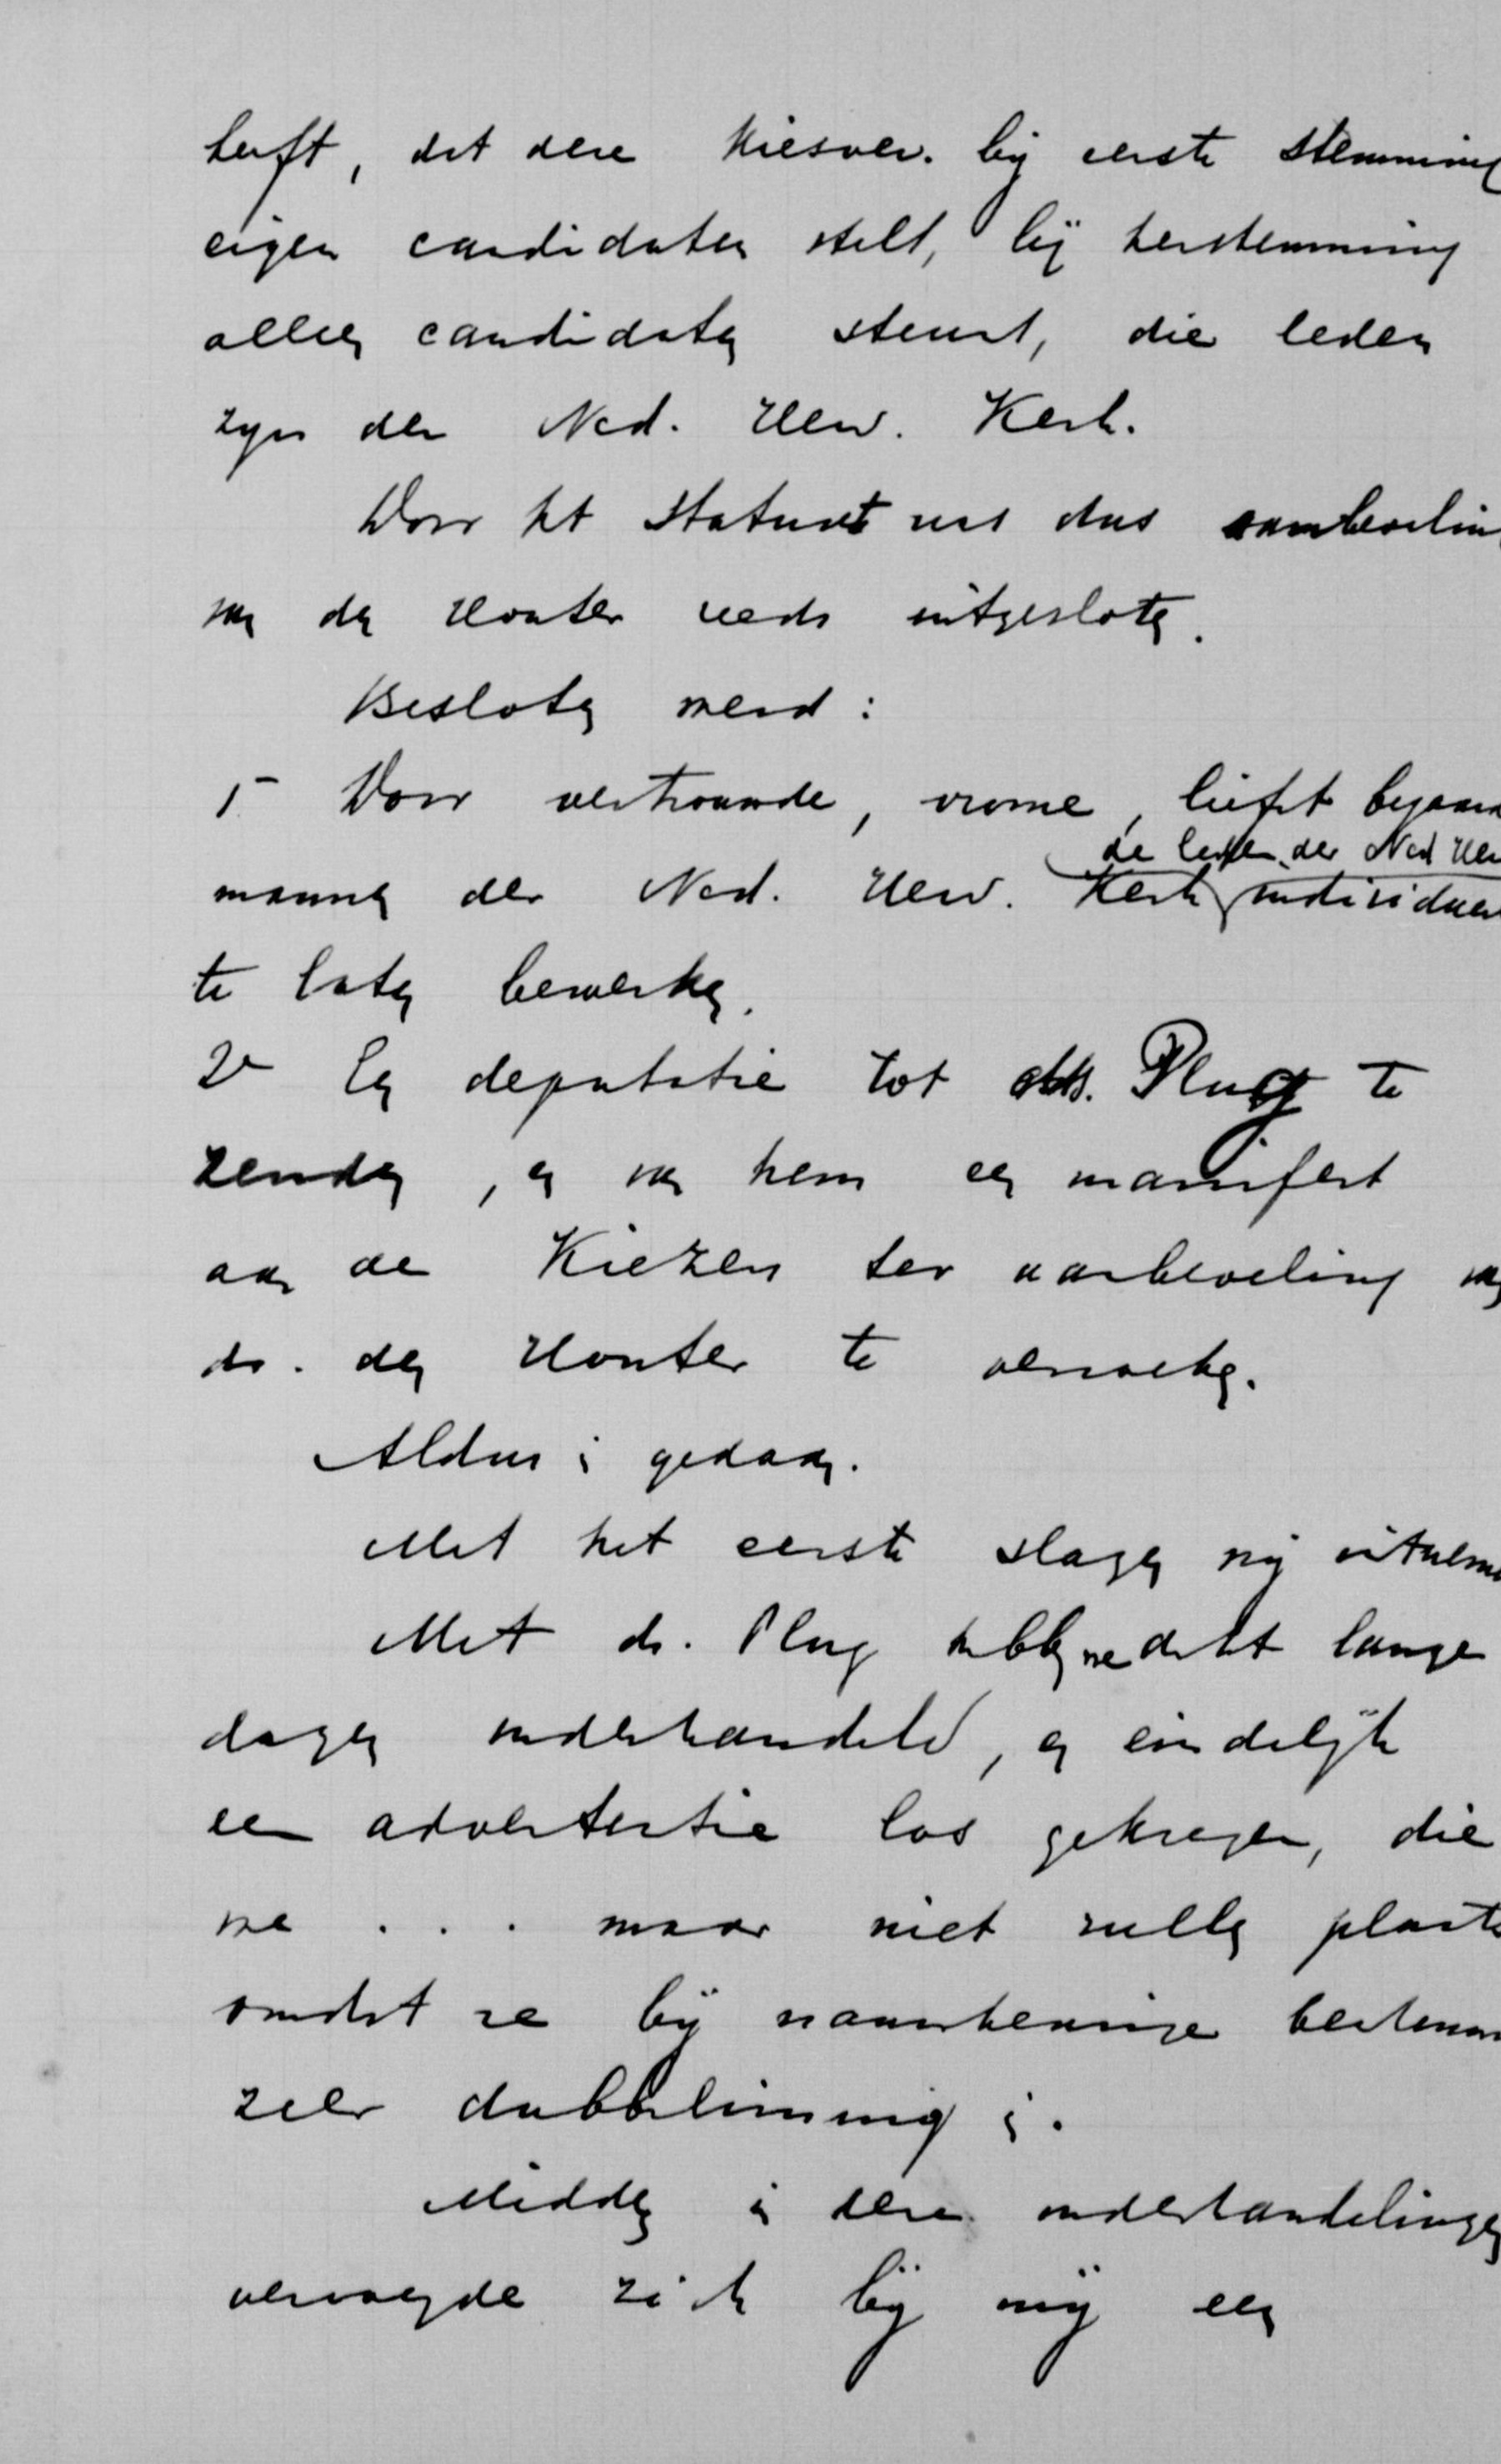 heeft, dat deze Kiesver. bij eerste stemming
eigen candidaten stelt, bij herstemming
alleen candidaten steunt, die leden
zijn der Ned. Herv. Kerk.
Door het Statuut was dus aanbeveling
van den Houter reeds uitgesloten.
Besloten werd:
1° Door vertrouwde, vrome, liefst bejaarde
de leden der Ned Herv
mannen der Ned. Herv. Kerk individueel
te laten bewerken.
2° Een deputatie tot ds. Plug te
zenden, en van hem een manifest
aan de Kiezers ter aanbeveling van
dr. den Houter te verzoeken.
Aldus is gedaan.
Met het eerste slagen wij
Met ds. Plug hebben we dat lange
dagen onderhandeld, en eindelijk
een advertentie los gekregen, die
we . . . maar niet zullen plaatsen
omdat ze bij nauwkeurige
zeer dubbelzinnig is.
Midden in deze onderhandelingen
vervoegde zich bij mij een